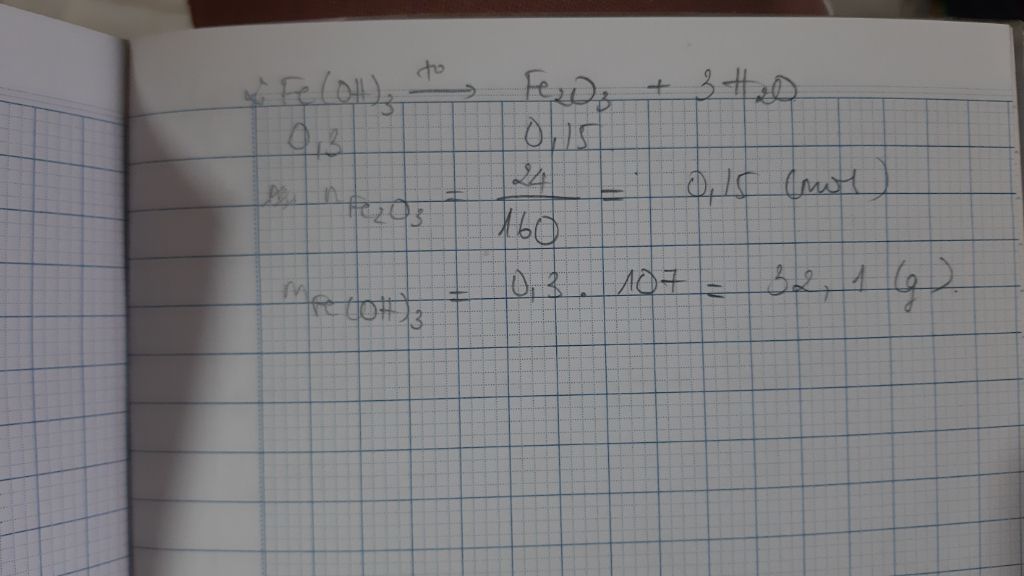 2 Fe(OH)₃ —t°→ Fe₂O₃ + 3 H₂O
0,3 0,15
n Fe₂O₃ = 24/160 = 0,15 (mol)
m Fe(OH)₃ = 0,3 . 107 = 32,1 (g).